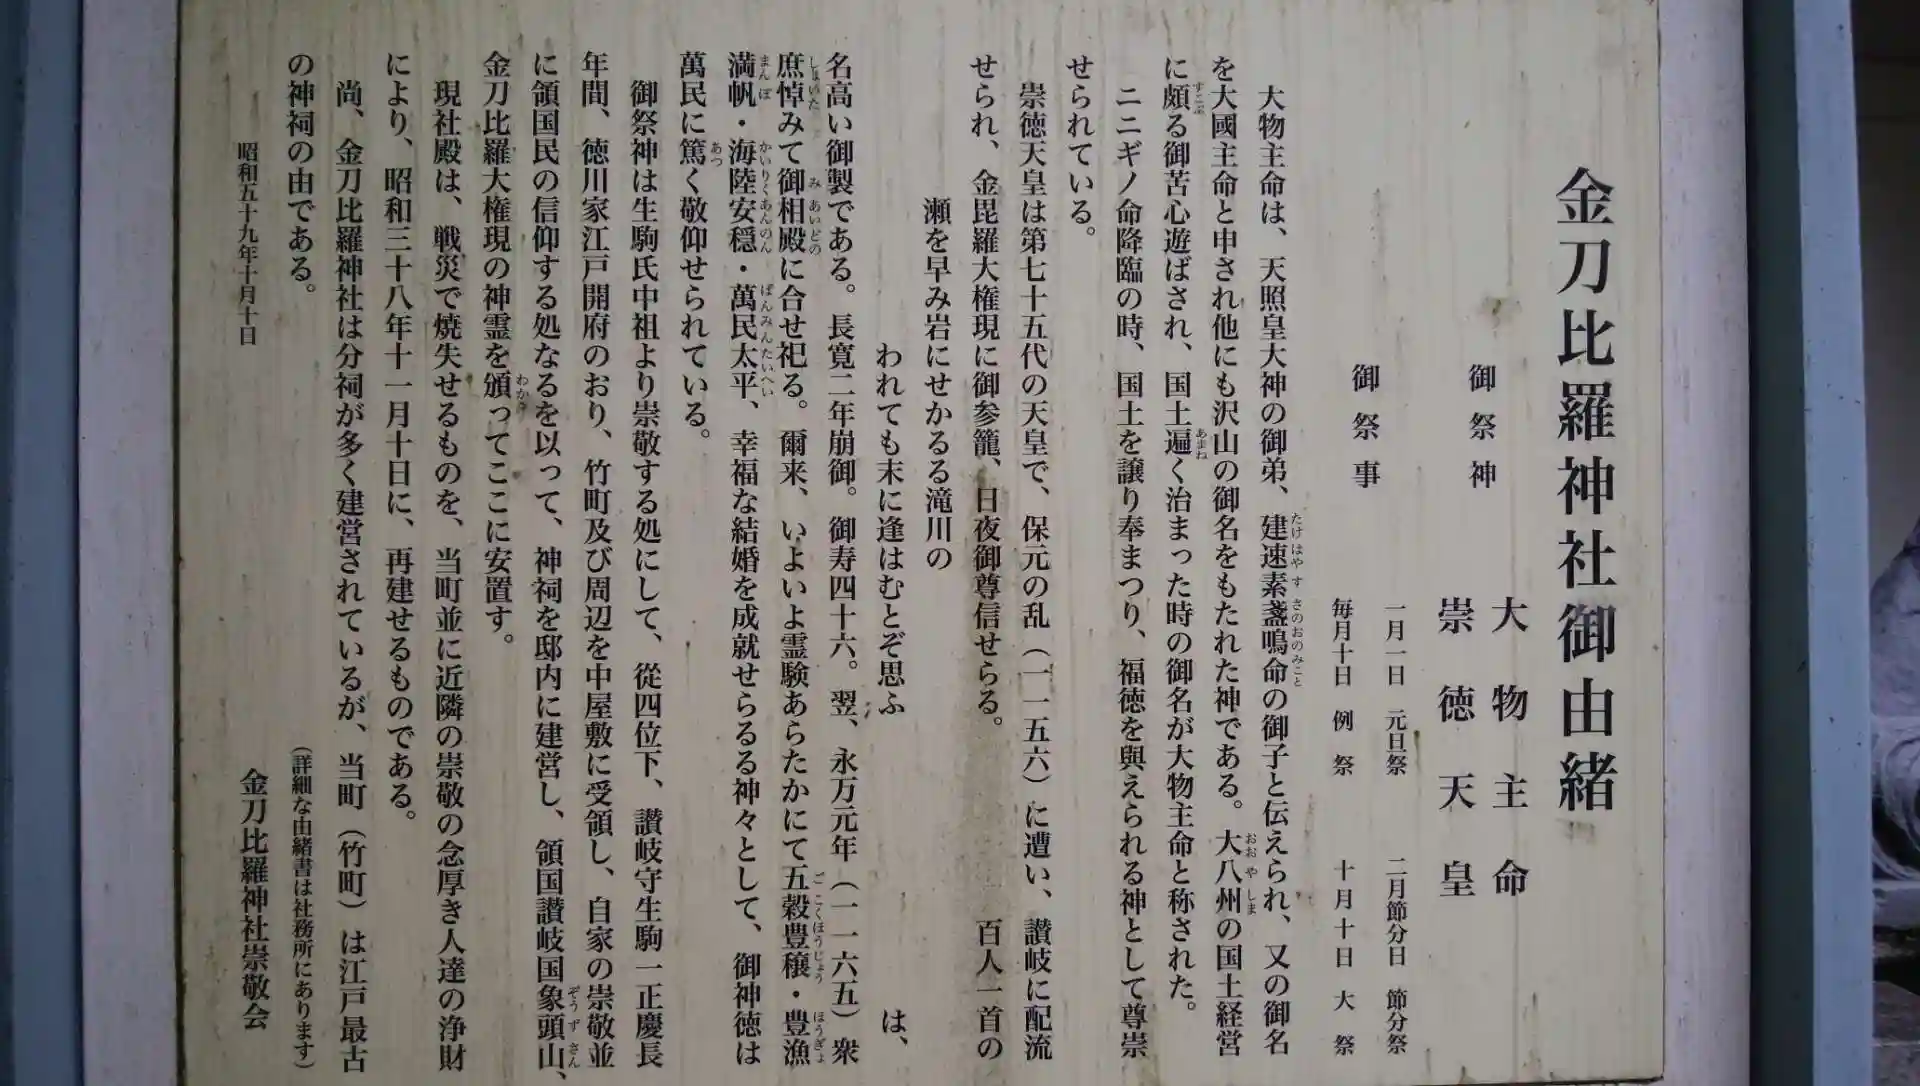 金刀比羅神社御由緒
御祭神　大物主命
崇徳天皇
御祭事　一月一日　元旦祭　二月節分日　節分祭
毎月十日　例　祭　十月十日　大　祭
大物主命は、天照皇大神の御弟、建速素盞鳴命の御子と伝えられ、又の御名
たけはやす　さのおのみこと
を大國主命と申され他にも沢山の御名をもたれた神である。大八州の国土経営
おおやしま
に頗る御苦心遊ばされ、国土遍く治まった時の御名が大物主命と称された。
すこぶ　あまね
ニニギノ命降臨の時、国土を譲り奉まつり、福徳を與えられる神として尊崇
せられている。
崇徳天皇は第七十五代の天皇で、保元の乱（一一五六）に遭い、讃岐に配流
せられ、金毘羅大権現に御参籠、日夜御尊信せらる。　百人一首の
瀬を早み岩にせかるる滝川の
われても末に逢はむとぞ思ふ　は、
名高い御製である。長寛二年崩御。御寿四十六。翌、永万元年（一一六五）衆
庶悼みて御相殿に合せ祀る。爾来、いよいよ霊験あらたかにて五穀豊穣・豊漁
しょいた　みあいどの　ごこくほうじょう　ほうぎょ
満帆・海陸安穏・萬民太平、幸福な結婚を成就せらるる神々として、御神徳は
まんぽ　かいりくあんのん　ばんみんたいへい
萬民に篤く敬仰せられている。
あつ
御祭神は生駒氏中祖より崇敬する処にして、從四位下、讃岐守生駒一正慶長
年間、徳川家江戸開府のおり、竹町及び周辺を中屋敷に受領し、自家の崇敬並
に領国民の信仰する処なるを以って、神祠を邸内に建営し、領国讃岐国象頭山、
ぞうずさん
金刀比羅大権現の神霊を頒ってここに安置す。
わか
現社殿は、戦災で焼失せるものを、当町並に近隣の崇敬の念厚き人達の浄財
により、昭和三十八年十一月十日に、再建せるものである。
尚、金刀比羅神社は分祠が多く建営されているが、当町（竹町）は江戸最古
の神祠の由である。
（詳細な由緒書は社務所にあります）
昭和五十九年十月十日
金刀比羅神社崇敬会